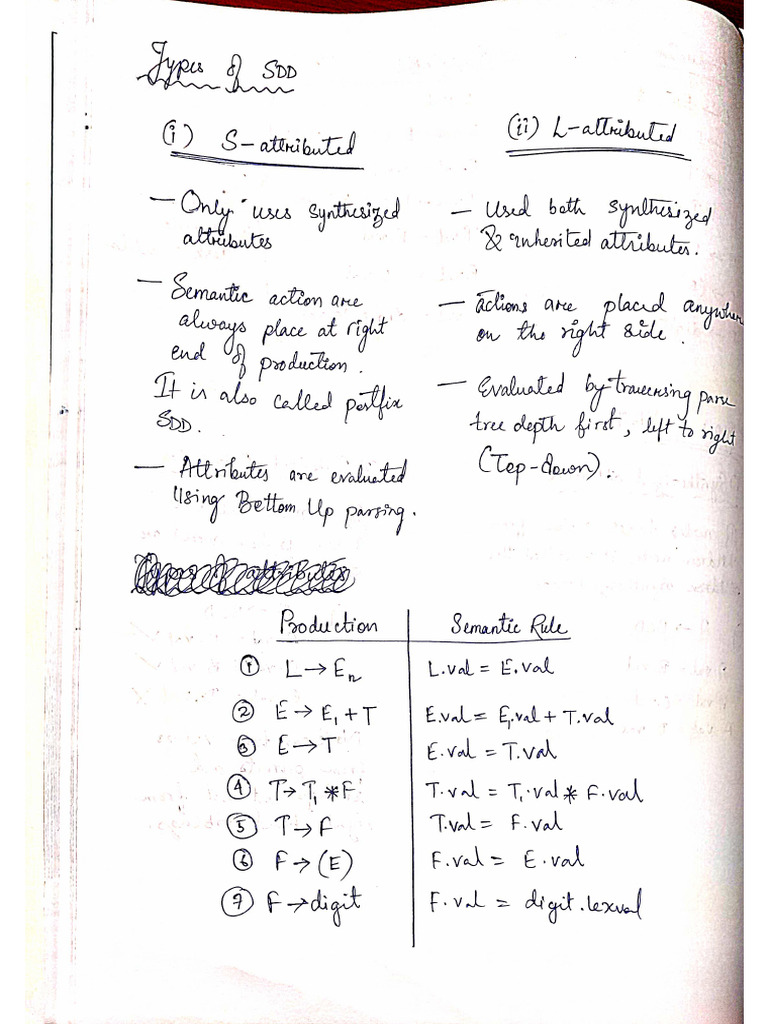 Types of SDD
(i) S-attributed
— Only uses synthesized
attributes
— Semantic action are
always place at right
end of production.
It is also called postfix
SDD.
— Attributes are evaluated
Using Bottom Up parsing.
(ii) L-attributed
— Used both synthesized
& inherited attributes.
— actions are placed anywher
on the right side.
— Evaluated by traversing parse
tree depth first, left to right
(Top-down).
Production | Semantic Rule
① L → En | L.val = E.val
② E → E1 + T | E.val = E1.val + T.val
③ E → T | E.val = T.val
④ T → T1 * F | T.val = T1.val * F.val
⑤ T → F | T.val = F.val
⑥ F → (E) | F.val = E.val
⑦ F → digit | F.val = digit.lexval